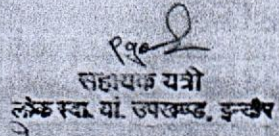 सहायक यंत्री
लोक स्वा. यां. उपखण्ड, इन्दौर